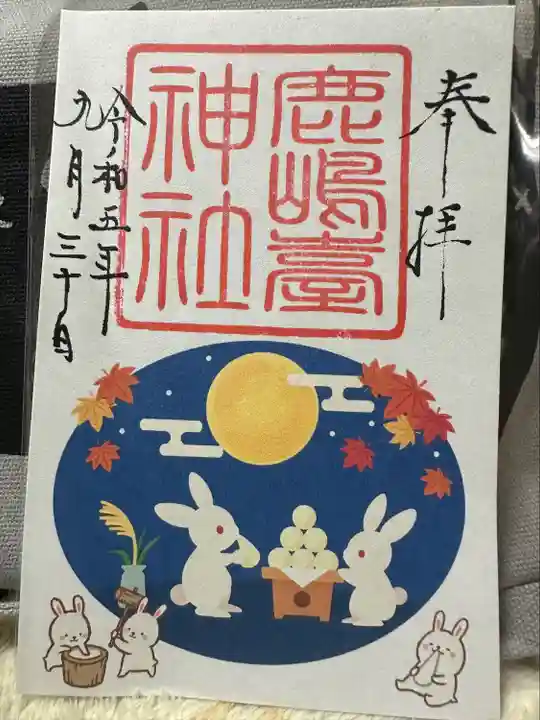 奉拝
鹿嶋臺
神社
令和五年
九月三十日